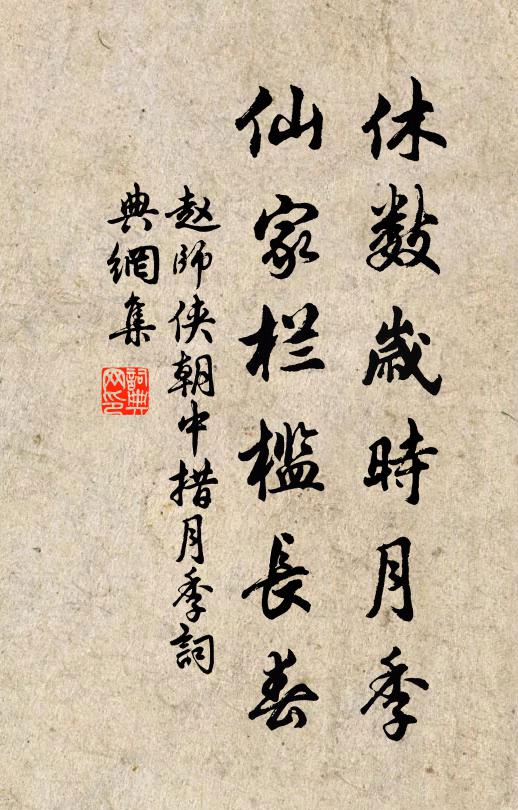 休数歲時月季
仙家栏槛長春
赵師侠朝中措月季詞
典網集
詞典网印